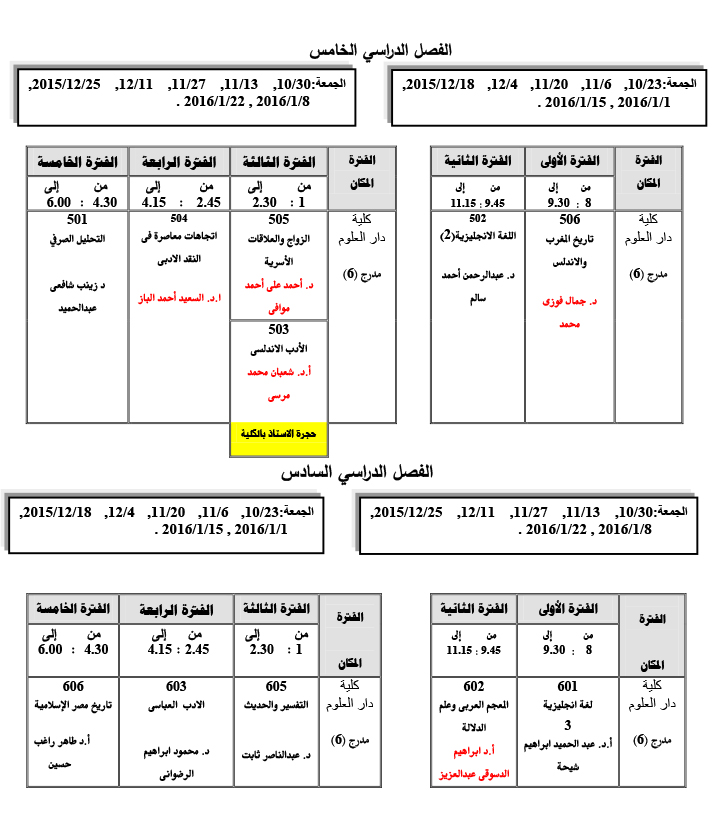 الفصل الدراسي الخامس
الجمعة:10/23, 11/6, 11/20, 12/4, 2015/12/18,
2016/1/1 , 2016/1/15 .
الجمعة:10/30, 11/13, 11/27, 12/11, 2015/12/25,
2016/1/8 , 2016/1/22 .
الفترة
المكان
الفترة الأولى
من إلى
8 : 9.30
الفترة الثانية
من إلى
9.45 : 11.15
كلية
دار العلوم
مدرج (6)
506
تاريخ المغرب
والاندلس
د. جمال فوزى
محمد
502
اللغة الانجليزية(2)
د. عبدالرحمن أحمد
سالم
الفترة
المكان
الفترة الثالثة
من إلى
1 : 2.30
الفترة الرابعة
من إلى
2.45 : 4.15
الفترة الخامسة
من إلى
4.30 : 6.00
كلية
دار العلوم
مدرج (6)
505
الزواج والعلاقات
الأسرية
د. أحمد على أحمد
موافى
503
الأدب الاندلسى
أ.د. شعبان محمد
مرسى
حجرة الاستاذ بالكلية
504
اتجاهات معاصرة فى
النقد الادبى
ا.د. السعيد أحمد الباز
501
التحليل الصرفي
د زينب شافعي
عبدالحميد
الفصل الدراسي السادس
الجمعة:10/30, 11/13, 11/27, 12/11, 2015/12/25,
2016/1/8 , 2016/1/22 .
الجمعة:10/23, 11/6, 11/20, 12/4, 2015/12/18,
2016/1/1 , 2016/1/15 .
الفترة
المكان
الفترة الأولى
من إلى
8 : 9.30
الفترة الثانية
من إلى
9.45 : 11.15
كلية
دار العلوم
مدرج (6)
601
لغة انجليزية
3
أ.د. عبد الحميد ابراهيم
شيحة
602
المعجم العربى وعلم
الدلالة
أ.د ابراهيم
الدسوقى عبدالعزيز
الفترة
المكان
الفترة الثالثة
من إلى
1 : 2.30
الفترة الرابعة
من إلى
2.45 : 4.15
الفترة الخامسة
من إلى
4.30 : 6.00
كلية
دار العلوم
مدرج (6)
605
التفسير والحديث
د. عبدالناصر ثابت
603
الادب العباسى
د. محمود ابراهيم
الرضوانى
606
تاريخ مصر الإسلامية
أ.د طاهر راغب
حسين